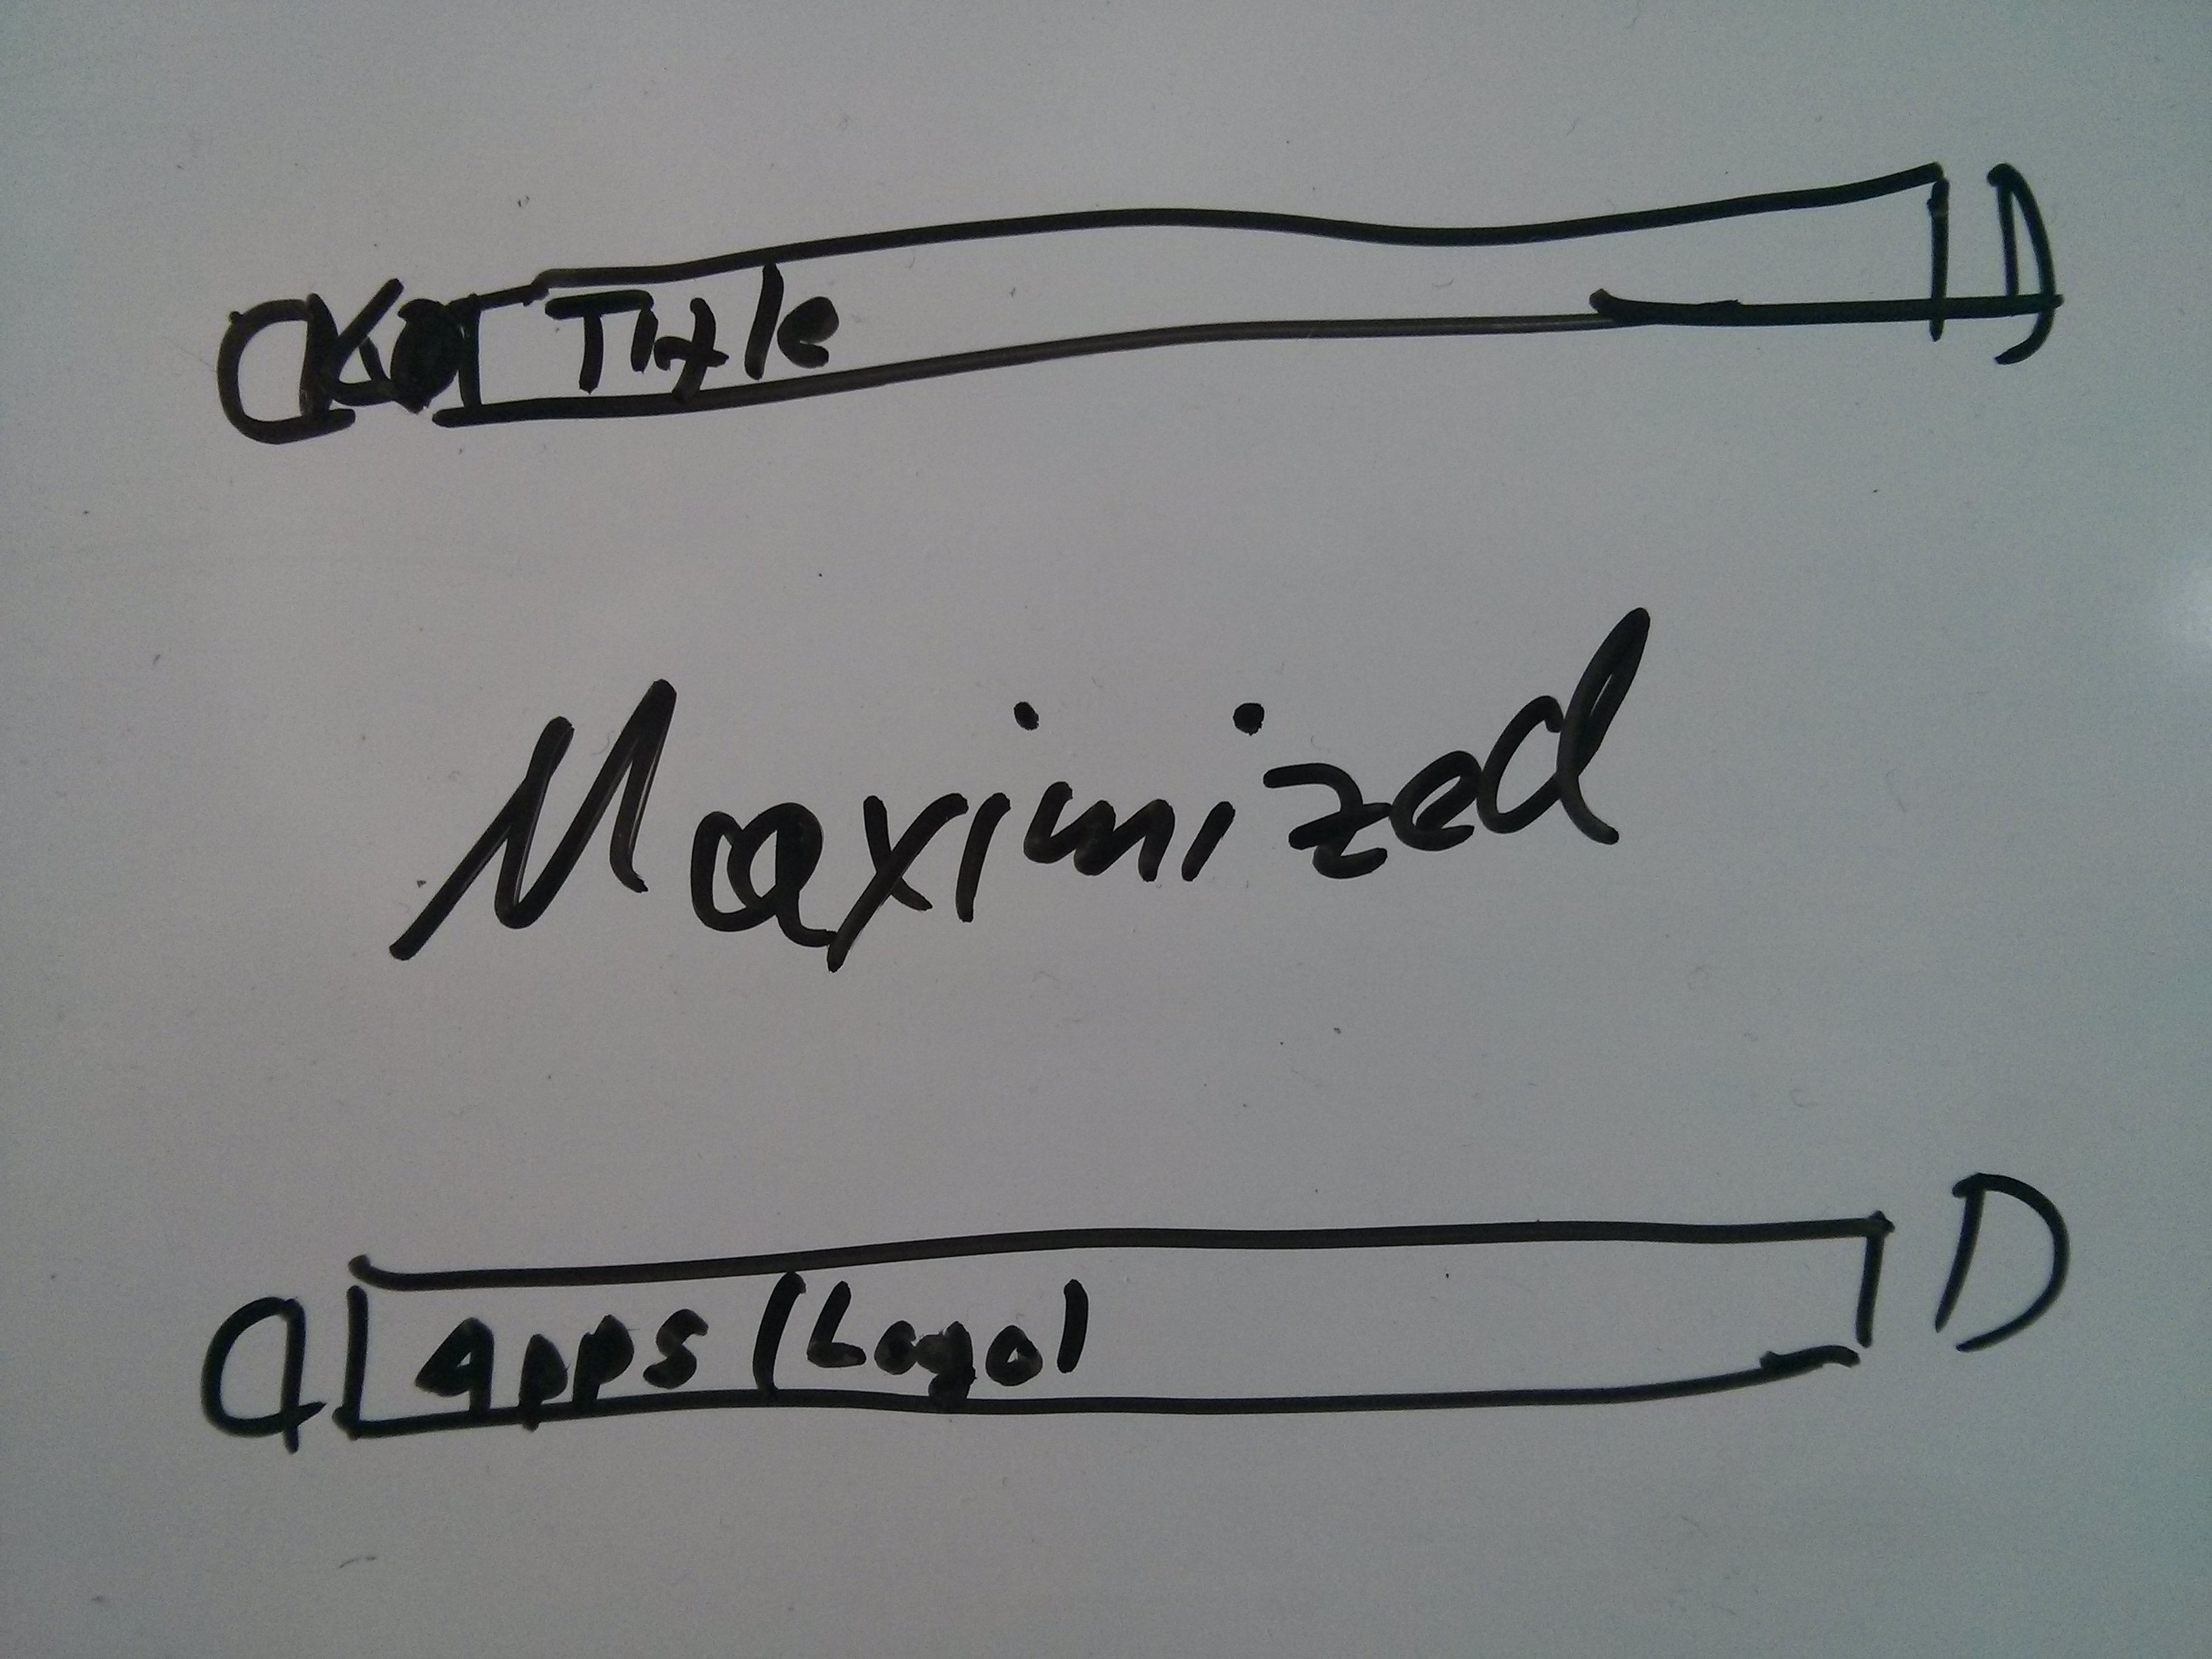 Title D
Maximized
Apps (Logo) D